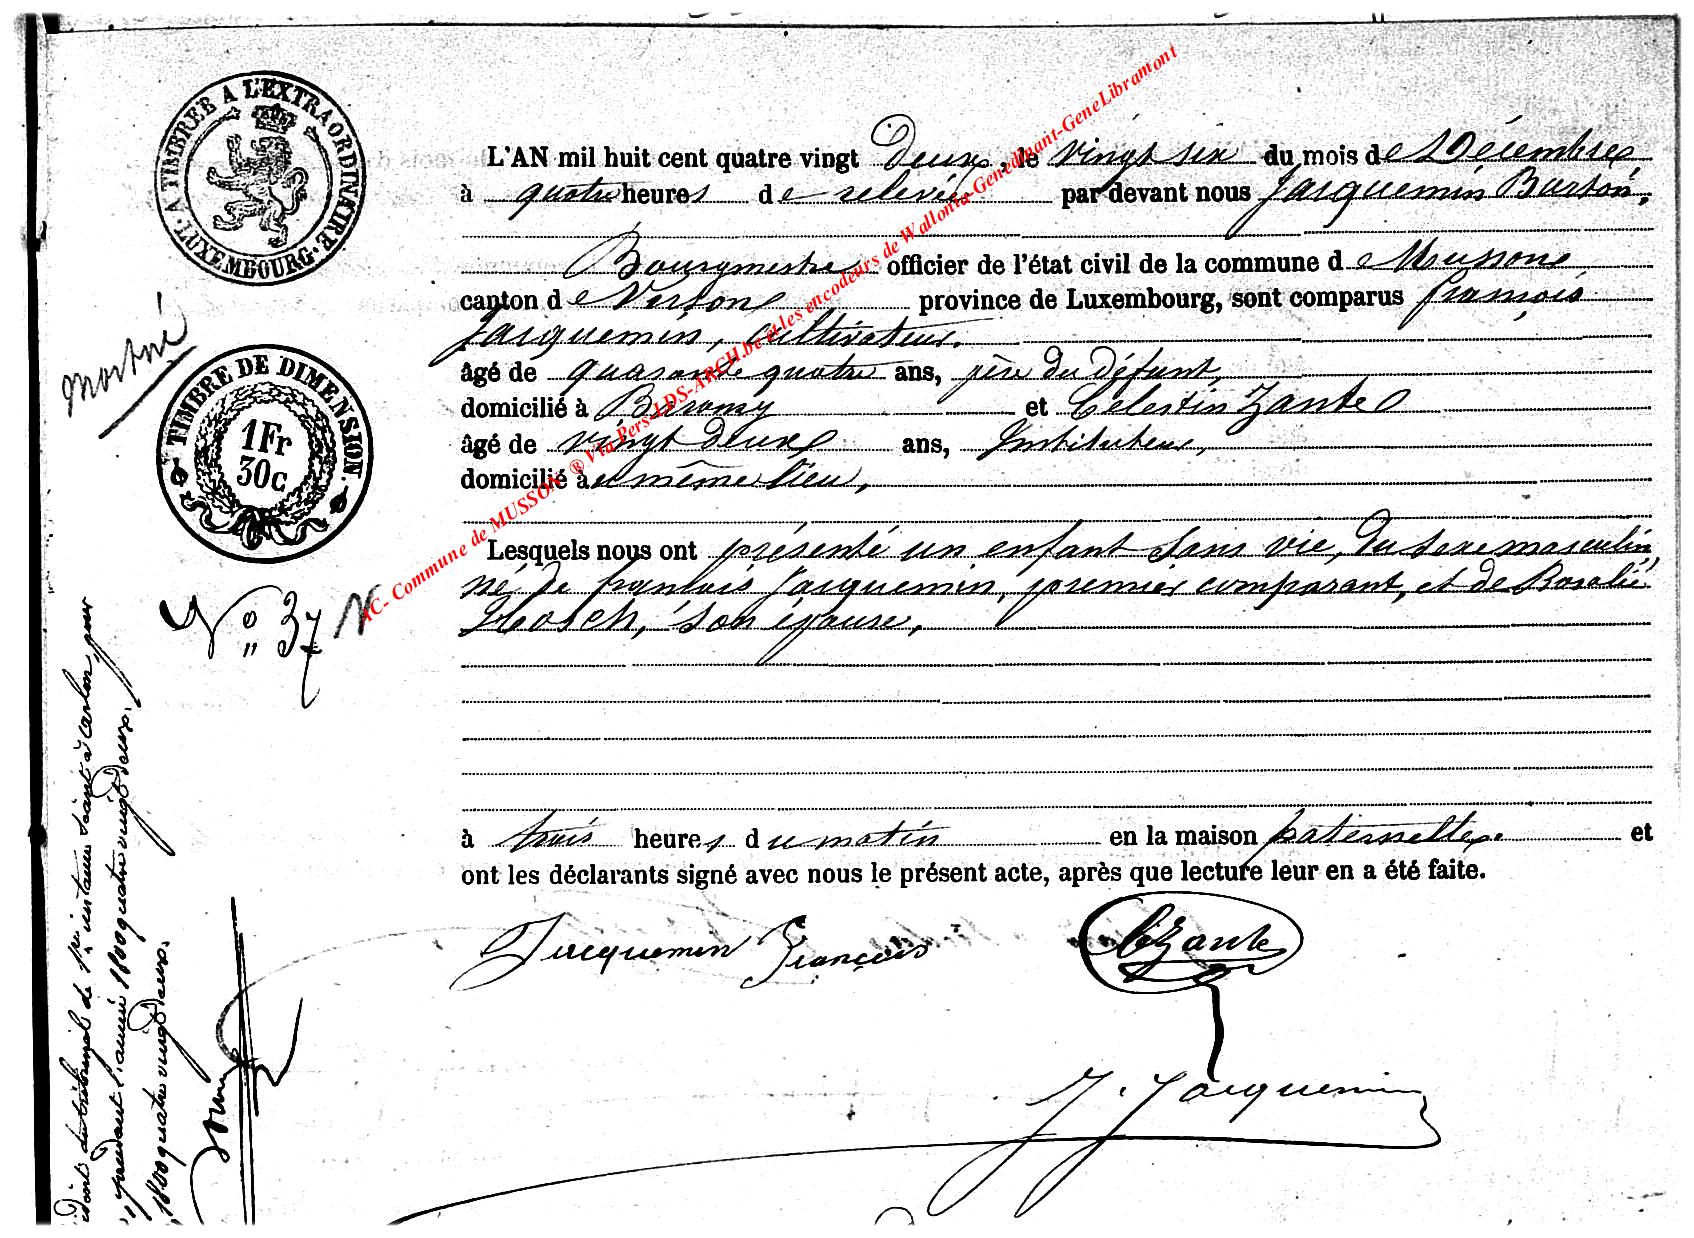 A TIMBRER A L'EXTRAORDINAIRE · LUXEMBOURG ·
L'AN mil huit cent quatre vingt Deux, le vingt six du mois de Décembre
à quatre heures de relevée par devant nous Jacquemin Burton,
Bourgmestre officier de l'état civil de la commune de Musson
canton de Virton province de Luxembourg, sont comparus françois
Jacquemin, cultivateur,
âgé de quarante quatre ans, père du défunt,
domicilié à Baranzy et Célestin Zante
âgé de vingt deux ans, Instituteur,
domicilié au même lieu,
Lesquels nous ont présenté un enfant sans vie, du sexe masculin,
né de françois Jacquemin, premier comparant, et de Rosalie
son épouse,
à trois heures du matin en la maison paternelle et
ont les déclarants signé avec nous le présent acte, après que lecture leur en a été faite.
Jacquemin François
Cé Zante
J. Jacquemin
Mort né
TIMBRE DE DIMENSION.
1Fr
30c
N° 37
du tribunal de 1re instance séant à Arlon, pour
pendant l'année 1800 quatre vingt deux.
1800 quatre vingt deux.
AC- Commune de MUSSON ® Via Pers-LDS-ARCH.be et les encodeurs de Wallonia-Genedinant-GeneLibramont